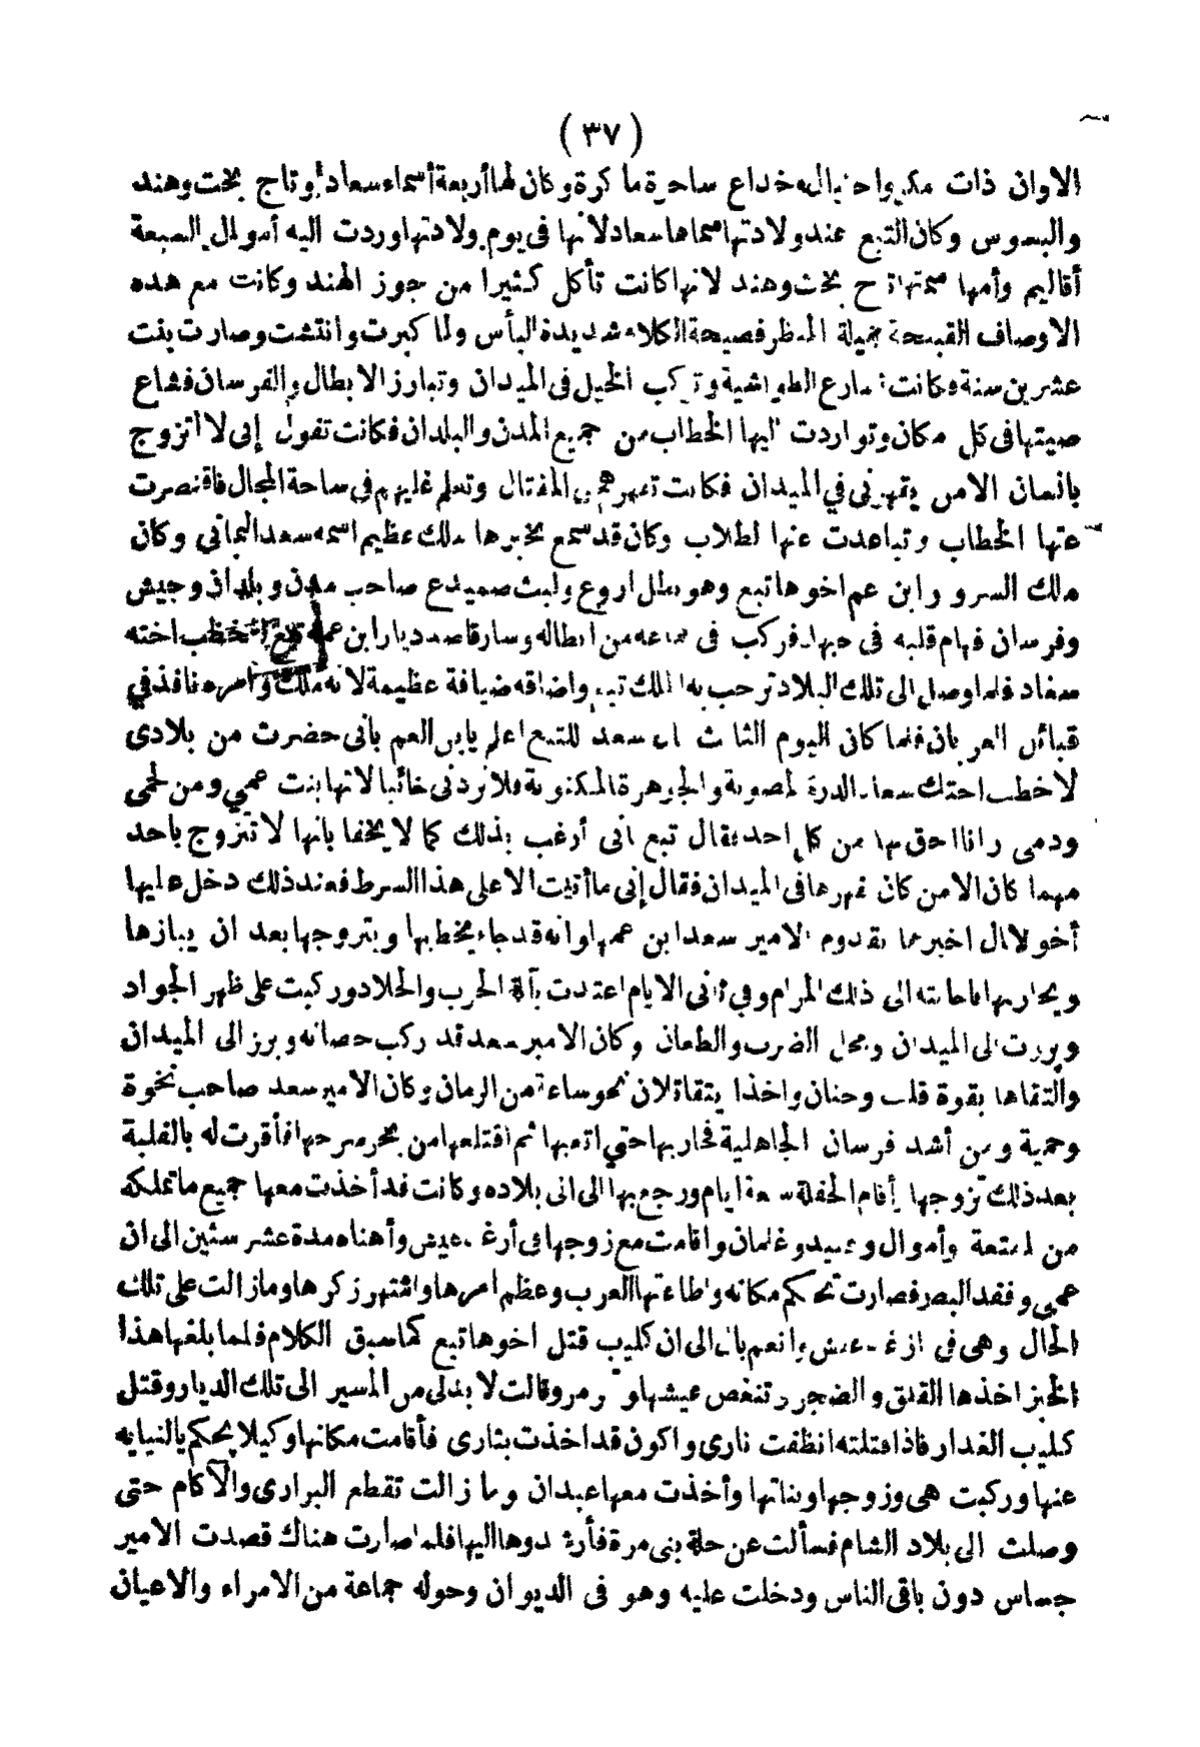 (٣٧)
الاوان ذات مكر واحتيال وخداع ساحرة ماكرة وكان لها أربعة أسماء سعاد وتاج بخت وهند
والبسوس وكان التبع عند ولادتها سماها سعاد لانها في يوم ولادتها وردت اليه أموال السبعة
أقاليم وأمها سمتها تاج بخت وهند لانها كانت تأكل كثيرا من جوز الهند وكانت مع هذه
الاوصاف القبيحة جميلة المنظر فصيحة الكلام شديدة البأس ولما كبرت وانتشت وصارت بنت
عشرين سنة وكانت تصارع الطواشية وتركب الخيل في الميدان وتبارز الابطال والفرسان فشاع
صيتها في كل مكان وتواردت اليها الخطاب من جميع المدن والبلدان فكانت تقول إني لا أتزوج
بانسان الا من يقهرني في الميدان فكانت تقهرهم في القتال وتعلم عليهم في ساحة المجال فاقتصرت
عنها الخطاب وتباعدت عنها الطلاب وكان قد سمع بخبرها ملك عظيم اسمه سعد اليماني وكان
ملك السرو وابن عم اخوها تبع وهو بطل اروع وليث صميدع صاحب مدن وبلدان وجيش
وفرسان فهام قلبه في حبها فركب في جماعه من ابطاله وسار قاصد ديار ابن عمه تبع ليخطب اخته
سعاد فلما وصل الى تلك البلاد ترحب به الملك تبع واضافه ضيافة عظيمة لانه ملك وامره نافذ في
قبائل العربان فلما كان اليوم الثالث سعد للتبع اعلم يابن العم بانى حضرت من بلادى
لاخطب اختك سعاد الدرة المصونة والجوهرة المكنونة فلا تردنى خائبا لانها بنت عمي ومن لحمى
ودمى وانا احق بها من كل احد فقال تبع انى أرغب بذلك كما لا يخفا بانها لا تتزوج باحد
مهما كان الا من كان قهرها في الميدان فقال إنى ما أتيت الا على هذا الشرط فعند ذلك دخل عليها
أخو اخبرها بقدوم الامير سعد ابن عمها وانه قد جاء يخطبها ويتزوجها بعد ان يبازها
ويحاربها فاجابته الى ذلك المرام وفي ثانى الايام اعتدت بآلة الحرب والجلاد وركبت على ظهر الجواد
وبرزت الى الميدان ومحل الضرب والطعان وكان الامير سعد قد ركب حصانه وبرز الى الميدان
والتقاها بقوة قلب وجنان واخذا يتقاتلان نحو ساعة من الزمان وكان الامير سعد صاحب نخوة
وحمية ومن أشد فرسان الجاهلية فحاربها حتي اتعبها ثم اقتلعها من بحر سرجها فأقرت له بالغلبة
بعد ذلك تزوجها أقام الحفلة سبعة ايام ورجع بها الى بلاده وكانت قد أخذت معها جميع ما تملكه
من امتعة وأموال وعبيد وغلمان واقامت مع زوجها في أرغد عيش وأهناه مدة عشر سنين الى ان
عمى وفقد البصر فصارت تحكم مكانه واطاعتها العرب وعظم امرها واشتهر زكرها وما زالت على تلك
الحال وهى في ارغد عيش وانعم بال الى ان كليب قتل اخوها تبع كما سبق الكلام فلما بلغها هذا
الخبز اخذها القلق والضجر وتنغص عيشها وتمرمر وقالت لا بدلى من المسير الى تلك الديار وقتل
كليب الغدار فاذا قتلته انطفت نارى واكون قد اخذت بثارى فأقامت مكانها وكيلا يحكم بالنيابه
عنها وركبت هى وزوجها وبناتها وأخذت معها عبدان وما زالت تقطع البرارى والآكام حتى
وصلت الى بلاد الشام فسألت عن حلة بنى مرة فأرشدوها اليها فلما صارت هناك قصدت الامير
جساس دون باقى الناس ودخلت عليه وهو في الديوان وحوله جماعة من الامراء والاعيان